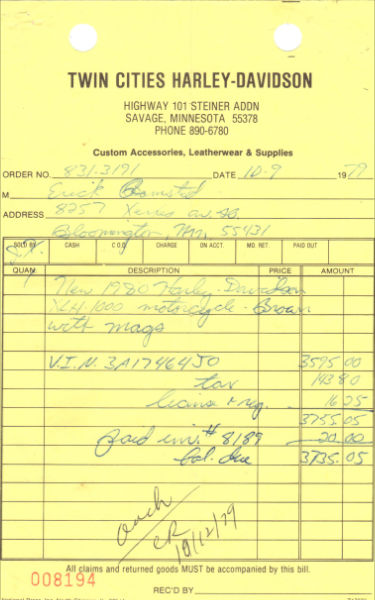 TWIN CITIES HARLEY-DAVIDSON
HIGHWAY 101 STEINER ADDN
SAVAGE, MINNESOTA 55378
PHONE 890-6780
Custom Accessories, Leatherwear & Supplies
ORDER NO. 831-3191 DATE 10-9 1979
M Erick
ADDRESS 8257 Xerxes av. So.
Bloomington, Mn. 55431
SOLD BY CASH C.O.D. CHARGE ON ACCT. MD. RET. PAID OUT
QUAN. DESCRIPTION PRICE AMOUNT
New 1980 Harley-Davidson
XLH 1000 motorcycle - Brown
with mags
V.I.N. 3A17464J0 3595.00
tax 143.80
license & reg. 16.25
3755.05
paid inv. # 8189 20.00
Bal. due 3735.05
10/12/79
All claims and returned goods MUST be accompanied by this bill.
008194 REC'D BY